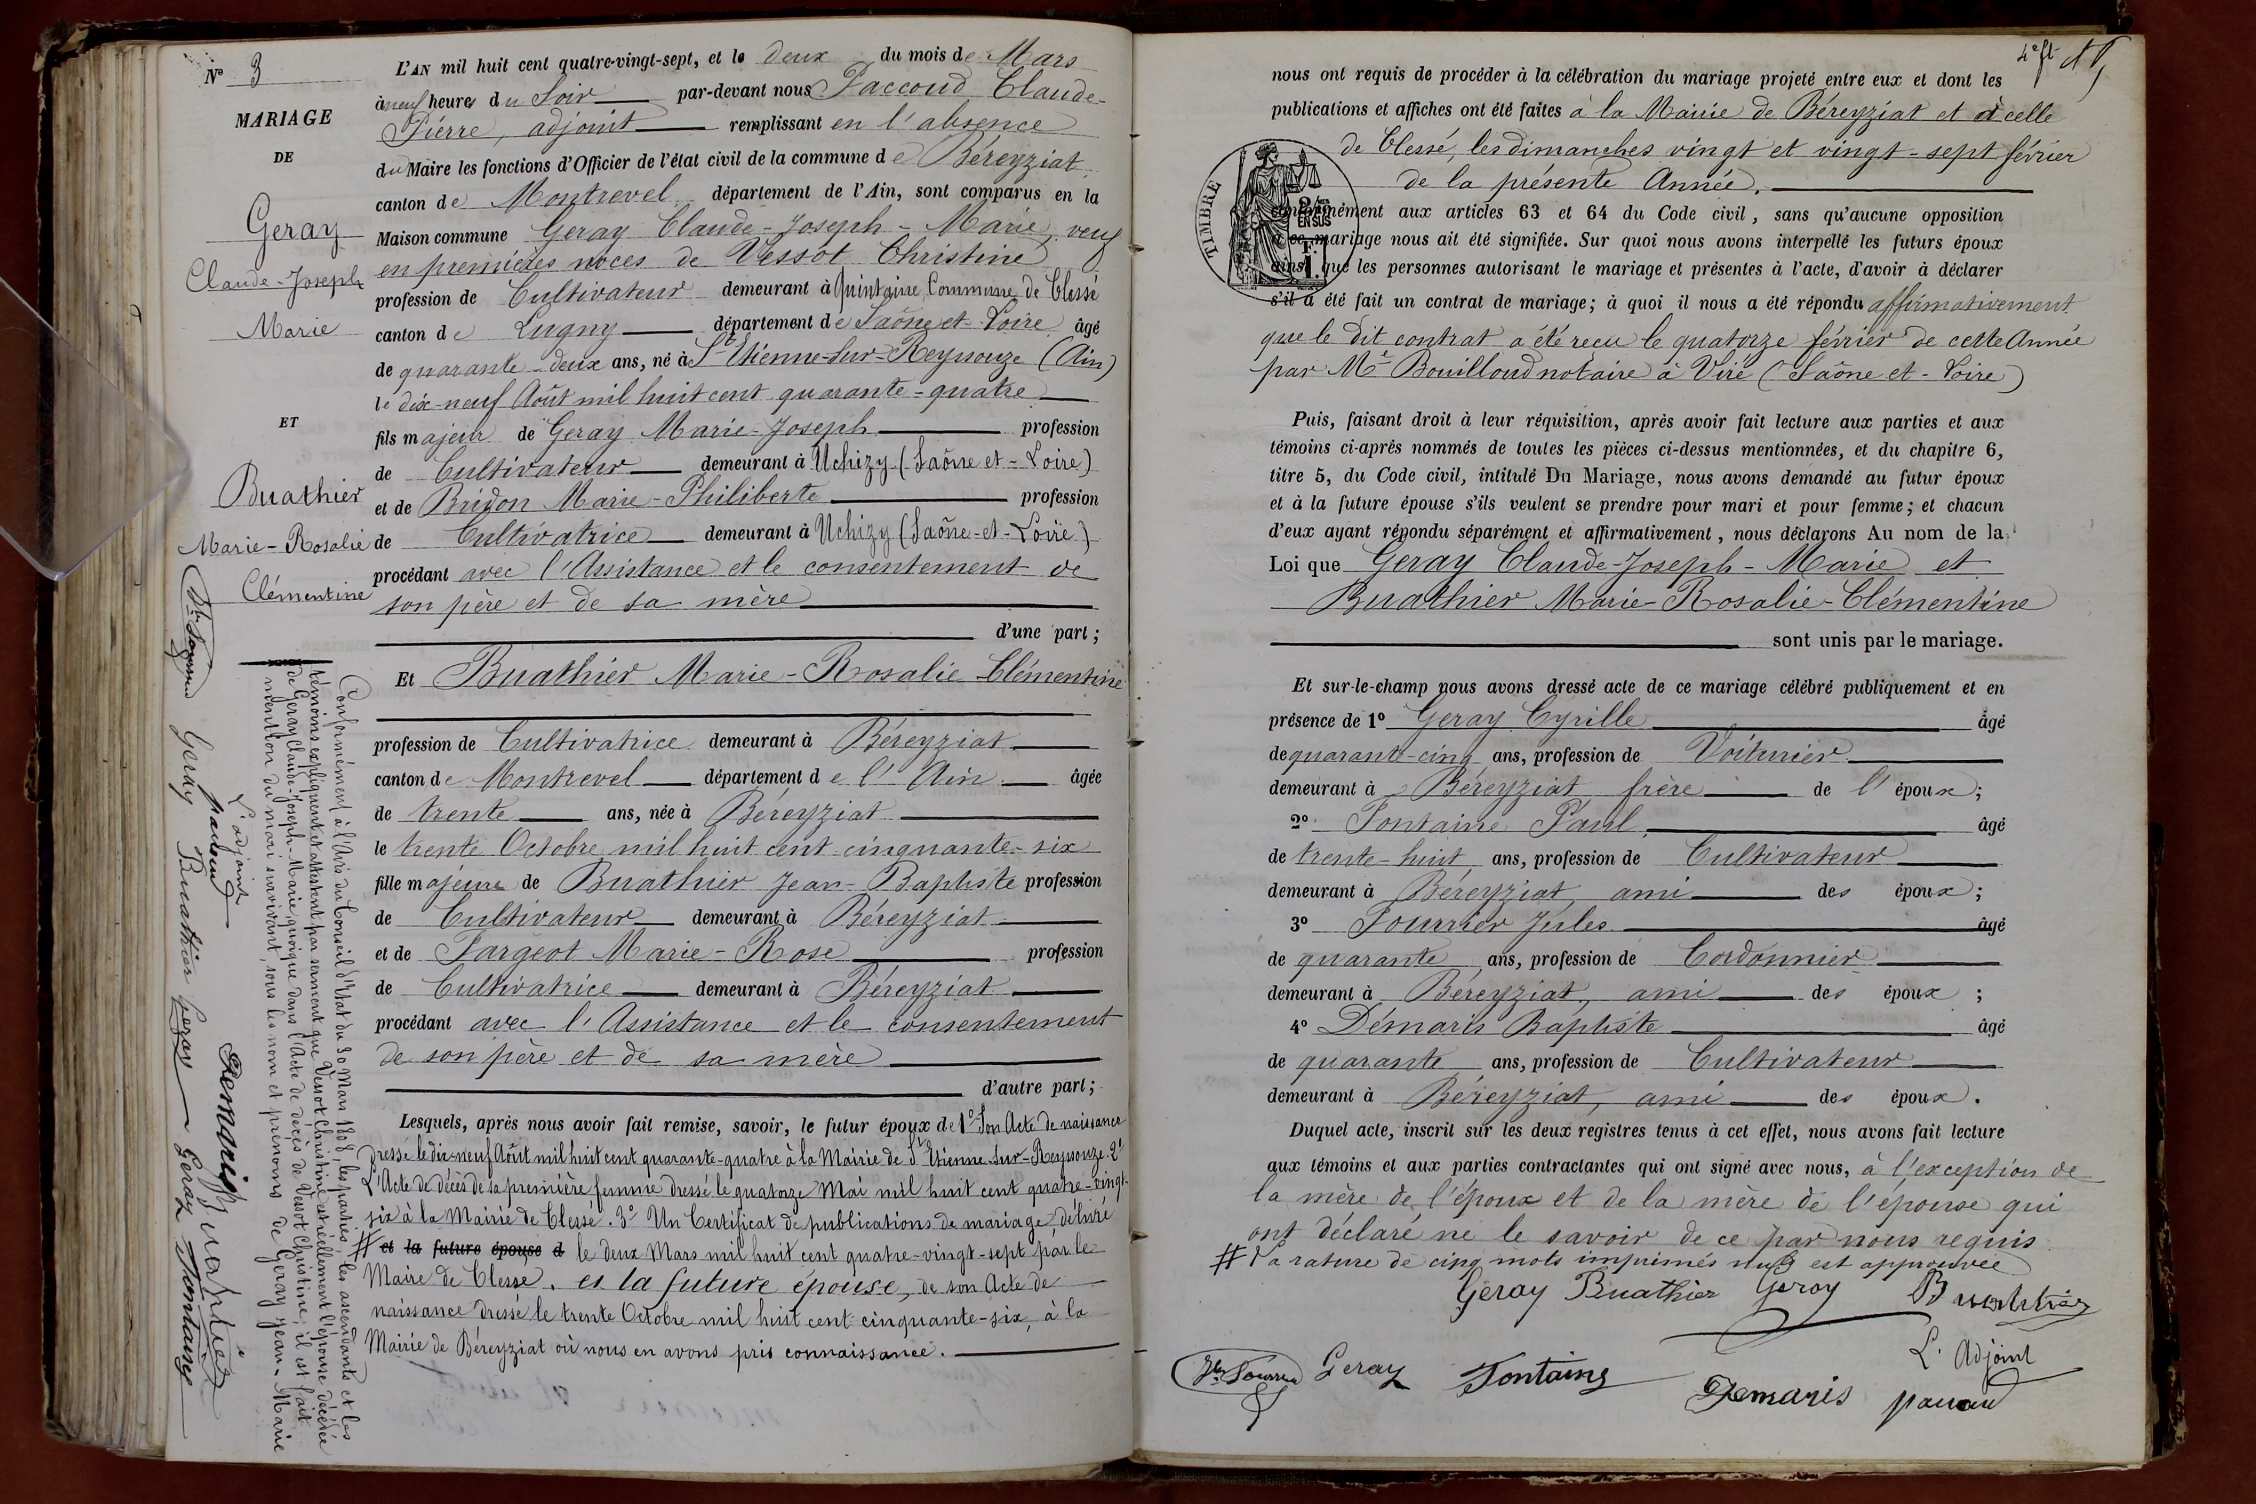 N° 3
MARIAGE
DE
Geray
Claude-Joseph
Marie
ET
Buathier
Marie-Rosalie
Clémentine
L'AN mil huit cent quatre-vingt-sept, et le deux du mois de Mars
à neuf heures du Soir par-devant nous Paccoud Claude-
Pierre, adjoint remplissant en l'absence
du Maire les fonctions d'Officier de l'état civil de la commune de Béreyziat
canton de Montrevel département de l'Ain, sont comparus en la
Maison commune Geray Claude-Joseph-Marie, veuf
en premières noces de Vessot Christine
profession de Cultivateur demeurant à Quintaine, Commune de Clessé
canton de Lugny département de Saône et Loire âgé
de quarante-deux ans, né à St Etienne-sur-Reyssouze (Ain)
le dix-neuf Août mil huit cent quarante-quatre
fils majeur de Geray Marie-Joseph profession
de Cultivateur demeurant à Uchizy (Saône et-Loire)
et de Bridon Marie-Philiberte profession
de Cultivatrice demeurant à Uchizy (Saône-et-Loire)
procédant avec l'Assistance et le consentement de
son père et de sa mère
d'une part ;
Et Buathier Marie-Rosalie-Clémentine
profession de Cultivatrice demeurant à Béreyziat
canton de Montrevel département de l'Ain âgée
de trente ans, née à Béreyziat
le trente Octobre mil huit cent cinquante-six
fille majeure de Buathier Jean-Baptiste profession
de Cultivateur demeurant à Béreyziat
et de Fargeot Marie-Rose profession
de Cultivatrice demeurant à Béreyziat
procédant avec l'Assistance et le consentement
de son père et de sa mère
d'autre part ;
Lesquels, après nous avoir fait remise, savoir, le futur époux de 1° Son Acte de naissance
dressé le dix-neuf Août mil huit cent quarante-quatre à la Mairie de St Etienne-sur-Reyssouze. 2°
L'Acte de décès de sa première femme dressé le quatorze Mai mil huit cent quatre-vingt-
six à la Mairie de Clessé. 3° Un Certificat de publications de mariage délivré
# et la future épouse d le deux Mars mil huit cent quatre-vingt-sept par le
Maire de Clessé. et la future épouse, de son Acte de
naissance dressé le trente Octobre mil huit cent cinquante-six, à la
Mairie de Béreyziat où nous en avons pris connaissance.
Conformément à l'Avis du Conseil d'Etat du 30 Mars 1808, les parties, les ascendants et les
témoins expliquent et attestent par serment que Vessot Christine est réellement l'épouse décédée
de Geray Claude-Joseph-Marie, quoique dans l'Acte de décès de Vessot Christine, il est fait
mention du mari survivant, sous les nom et prénoms de Geray Jean-Marie
L'adjoint
Paccoud
Demaris
Buathier
Geray Buathier Geray Geray Fontaine
4e ft
nous ont requis de procéder à la célébration du mariage projeté entre eux et dont les
publications et affiches ont été faites à la Mairie de Béreyziat et à celle
de Clessé, les dimanches vingt et vingt-sept février
de la présente Année.
TIMBRE
2/10es
EN SUS
conformément aux articles 63 et 64 du Code civil, sans qu'aucune opposition
à ce mariage nous ait été signifiée. Sur quoi nous avons interpellé les futurs époux
ainsi que les personnes autorisant le mariage et présentes à l'acte, d'avoir à déclarer
s'il a été fait un contrat de mariage ; à quoi il nous a été répondu affirmativement
que le dit contrat a été reçu le quatorze février de cette Année
par Me Bouilloud notaire à Viré (Saône et-Loire)
Puis, faisant droit à leur réquisition, après avoir fait lecture aux parties et aux
témoins ci-après nommés de toutes les pièces ci-dessus mentionnées, et du chapitre 6,
titre 5, du Code civil, intitulé Du Mariage, nous avons demandé au futur époux
et à la future épouse s'ils veulent se prendre pour mari et pour femme ; et chacun
d'eux ayant répondu séparément et affirmativement, nous déclarons Au nom de la
Loi que Geray Claude-Joseph-Marie et
Buathier Marie-Rosalie-Clémentine
sont unis par le mariage.
Et sur-le-champ nous avons dressé acte de ce mariage célébré publiquement et en
présence de 1° Geray Cyrille âgé
de quarante-cinq ans, profession de Voiturier
demeurant à Béreyziat frère de l'époux ;
2° Fontaine Paul âgé
de trente-huit ans, profession de Cultivateur
demeurant à Béreyziat, ami des époux ;
3° Fourrier Jules âgé
de quarante ans, profession de Cordonnier
demeurant à Béreyziat, ami des époux ;
4° Démaris Baptiste âgé
de quarante ans, profession de Cultivateur
demeurant à Béreyziat, ami des époux.
Duquel acte, inscrit sur les deux registres tenus à cet effet, nous avons fait lecture
aux témoins et aux parties contractantes qui ont signé avec nous, à l'exception de
la mère de l'époux et de la mère de l'épouse qui
ont déclaré ne le savoir de ce par nous requis
# La rature de cinq mots imprimés nuls est approuvée
Geray Buathier Geray Buathier
L'Adjoint
Geray Fontaine Demaris Paccoud